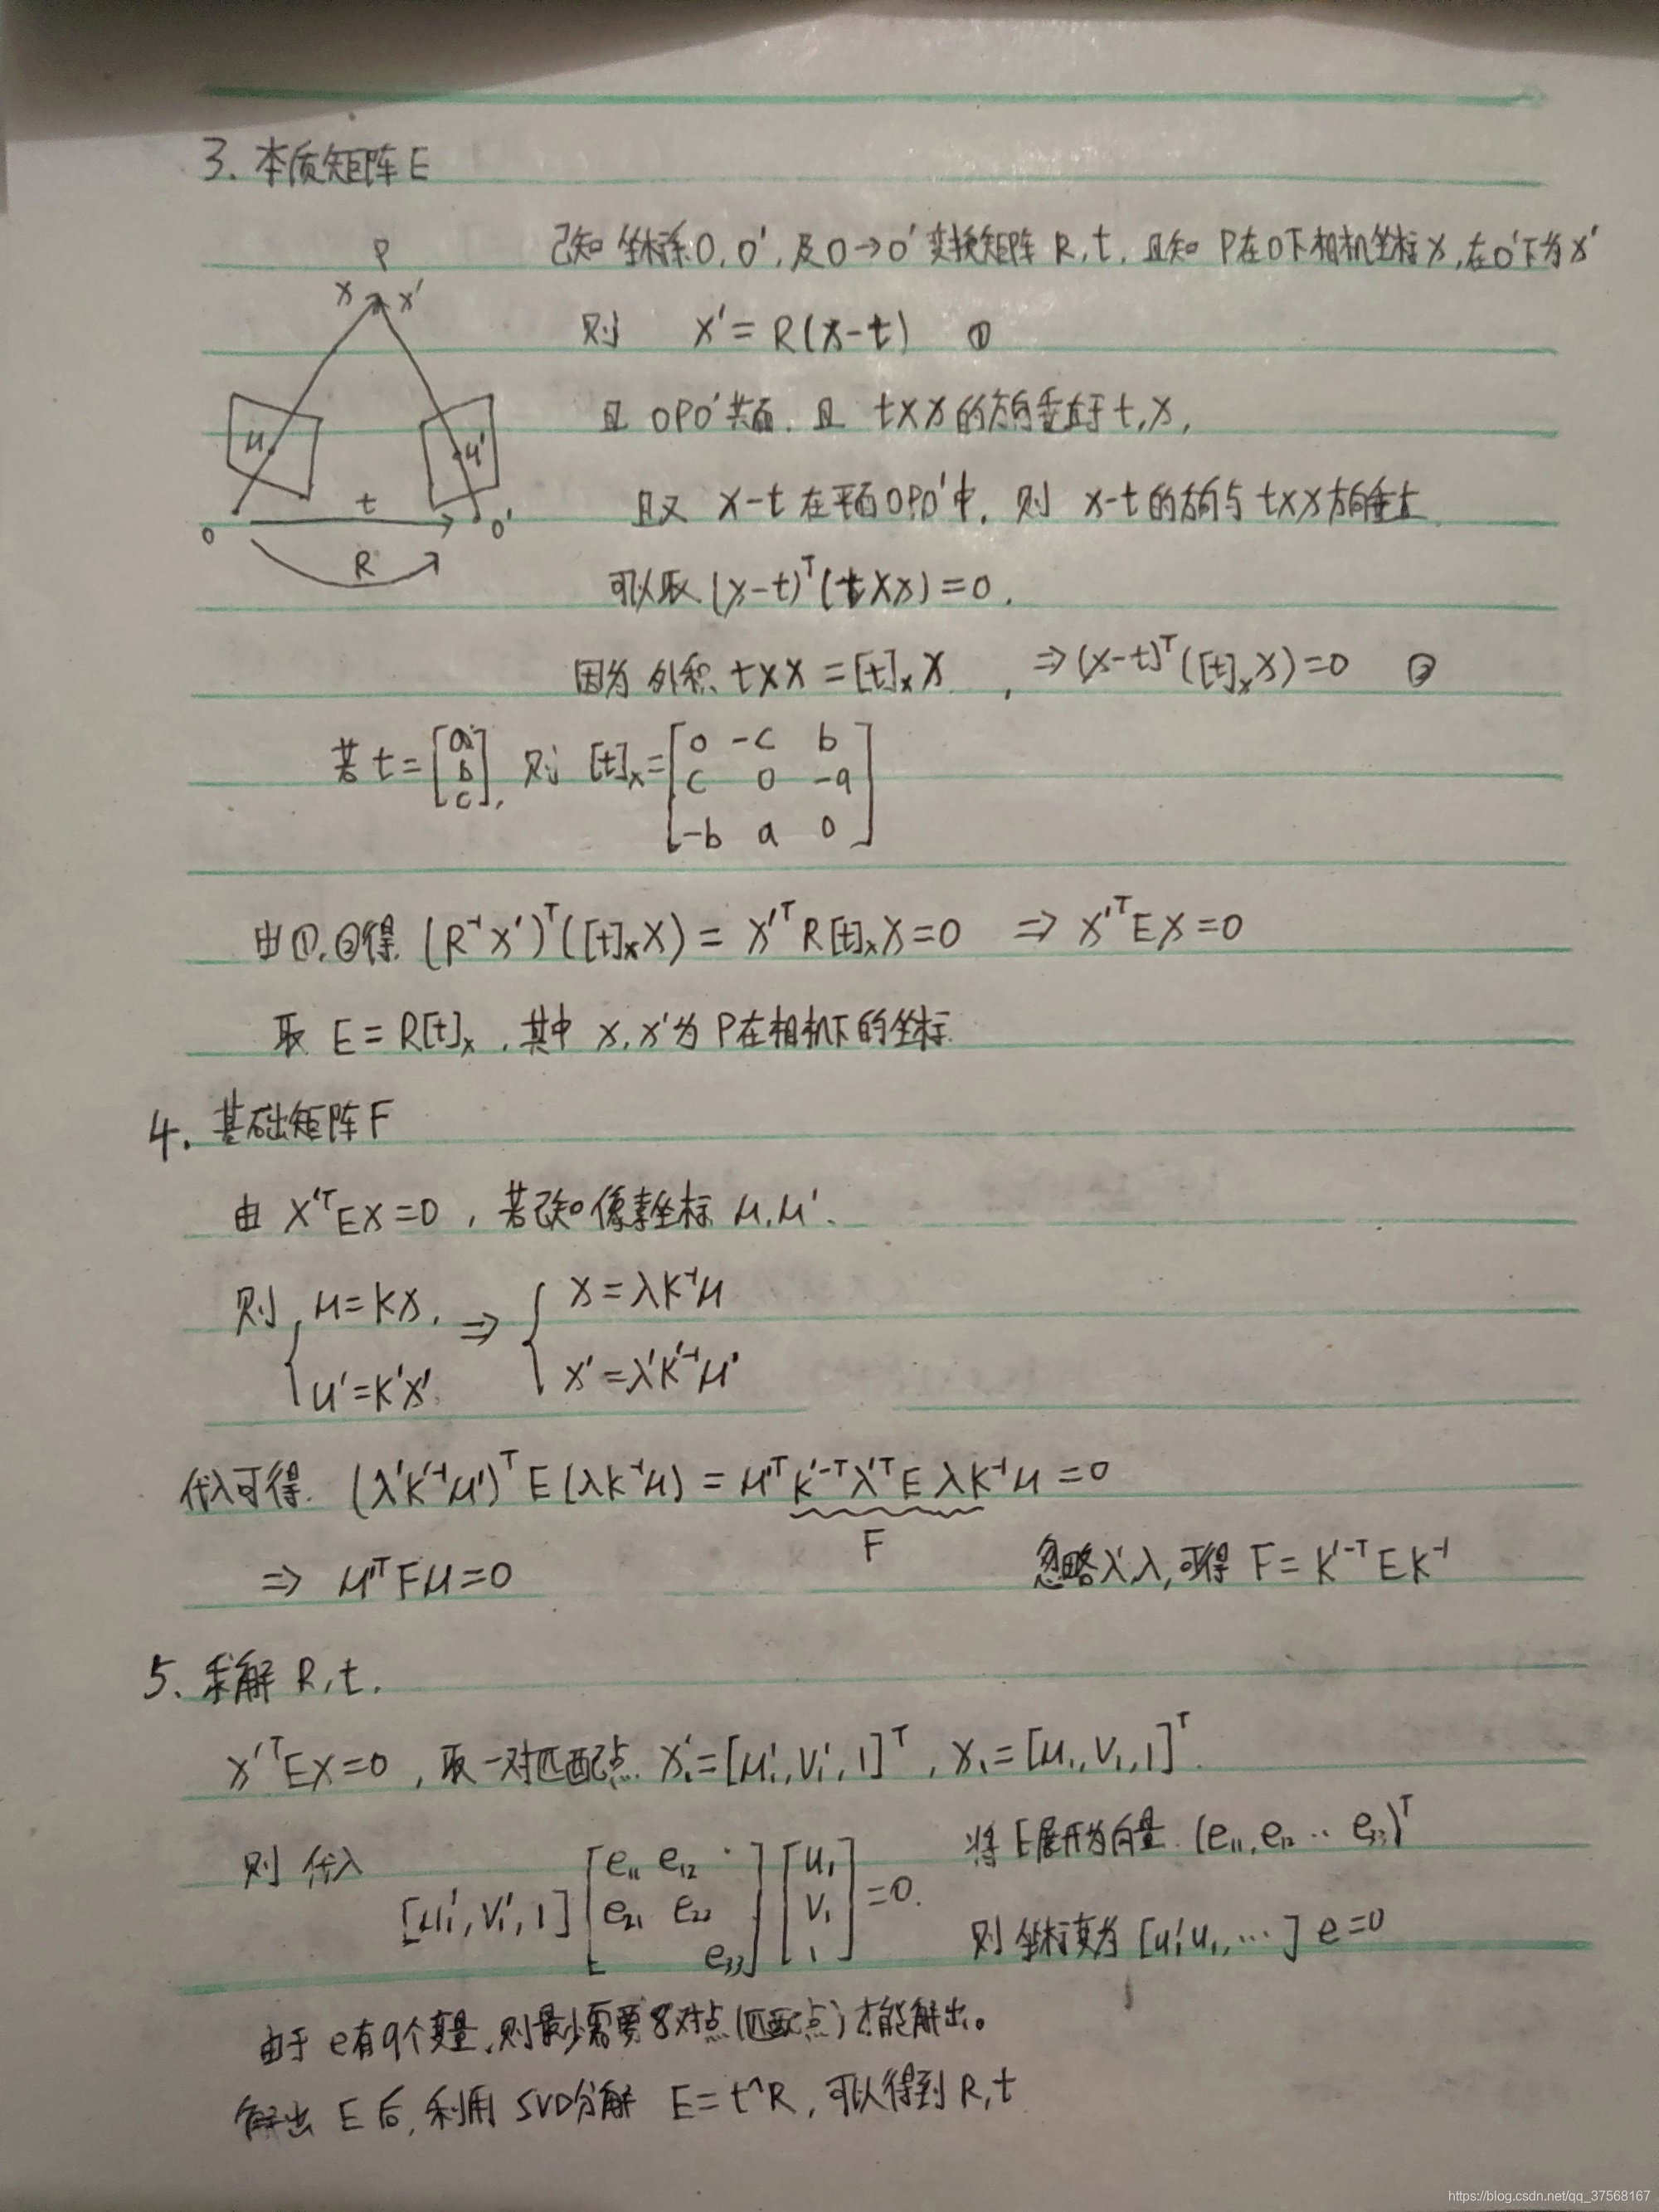 3. 本质矩阵E
已知坐标系O, O', 及O→O'变换矩阵 R, t, 且知 P在O下相机坐标x, 在O'下为x'
P
x x'
u u'
t
O O'
R
则 x' = R(x-t) ①
且 OPO'共面. 且 t×x的方向垂直于t, x,
且又 x-t 在平面OPO'中, 则 x-t的方向与t×x方向垂直
可以取 (x-t)ᵀ(t×x)=0.
因为外积 t×x = [t]ₓx, ⇒(x-t)ᵀ([t]ₓx)=0 ②
若 t = [a b c], 则 [t]ₓ = [0 -c b
c 0 -a
-b a 0]
由①,②得 (R⁻¹x')ᵀ([t]ₓx) = x'ᵀR[t]ₓx=0 ⇒ x'ᵀEx=0
取 E = R[t]ₓ, 其中 x, x'为 P在相机下的坐标
4. 基础矩阵F
由 x'ᵀEx=0, 若已知像素坐标 u, u'.
则 u=Kx, ⇒ x=λK⁻¹u
u'=K'x' x'=λ'K'⁻¹u'
代入可得. (λ'K'⁻¹u')ᵀE(λK⁻¹u) = u'ᵀK'⁻ᵀλ'ᵀEλK⁻¹u=0
F
⇒ u'ᵀFu=0 忽略λ',λ, 可得 F=K'⁻ᵀEK⁻¹
5. 求解 R, t.
x'ᵀEx=0, 取一对匹配点 x₁'=[u₁', v₁', 1]ᵀ, x₁=[u₁, v₁, 1]ᵀ.
则代入 [u₁', v₁', 1] [e₁₁ e₁₂ ·
e₂₁ e₂₂
e₃₃] [u₁ v₁ 1] =0.
将E展开为向量 (e₁₁, e₁₂ ·· e₃₃)ᵀ
则坐标变为 [u₁'u₁, ···] e=0
由于 e有9个变量, 则最少需要8对点(匹配点)才能解出。
解出 E后, 利用 SVD分解 E=t^R, 可以得到 R, t
https://blog.csdn.net/qq_37568167